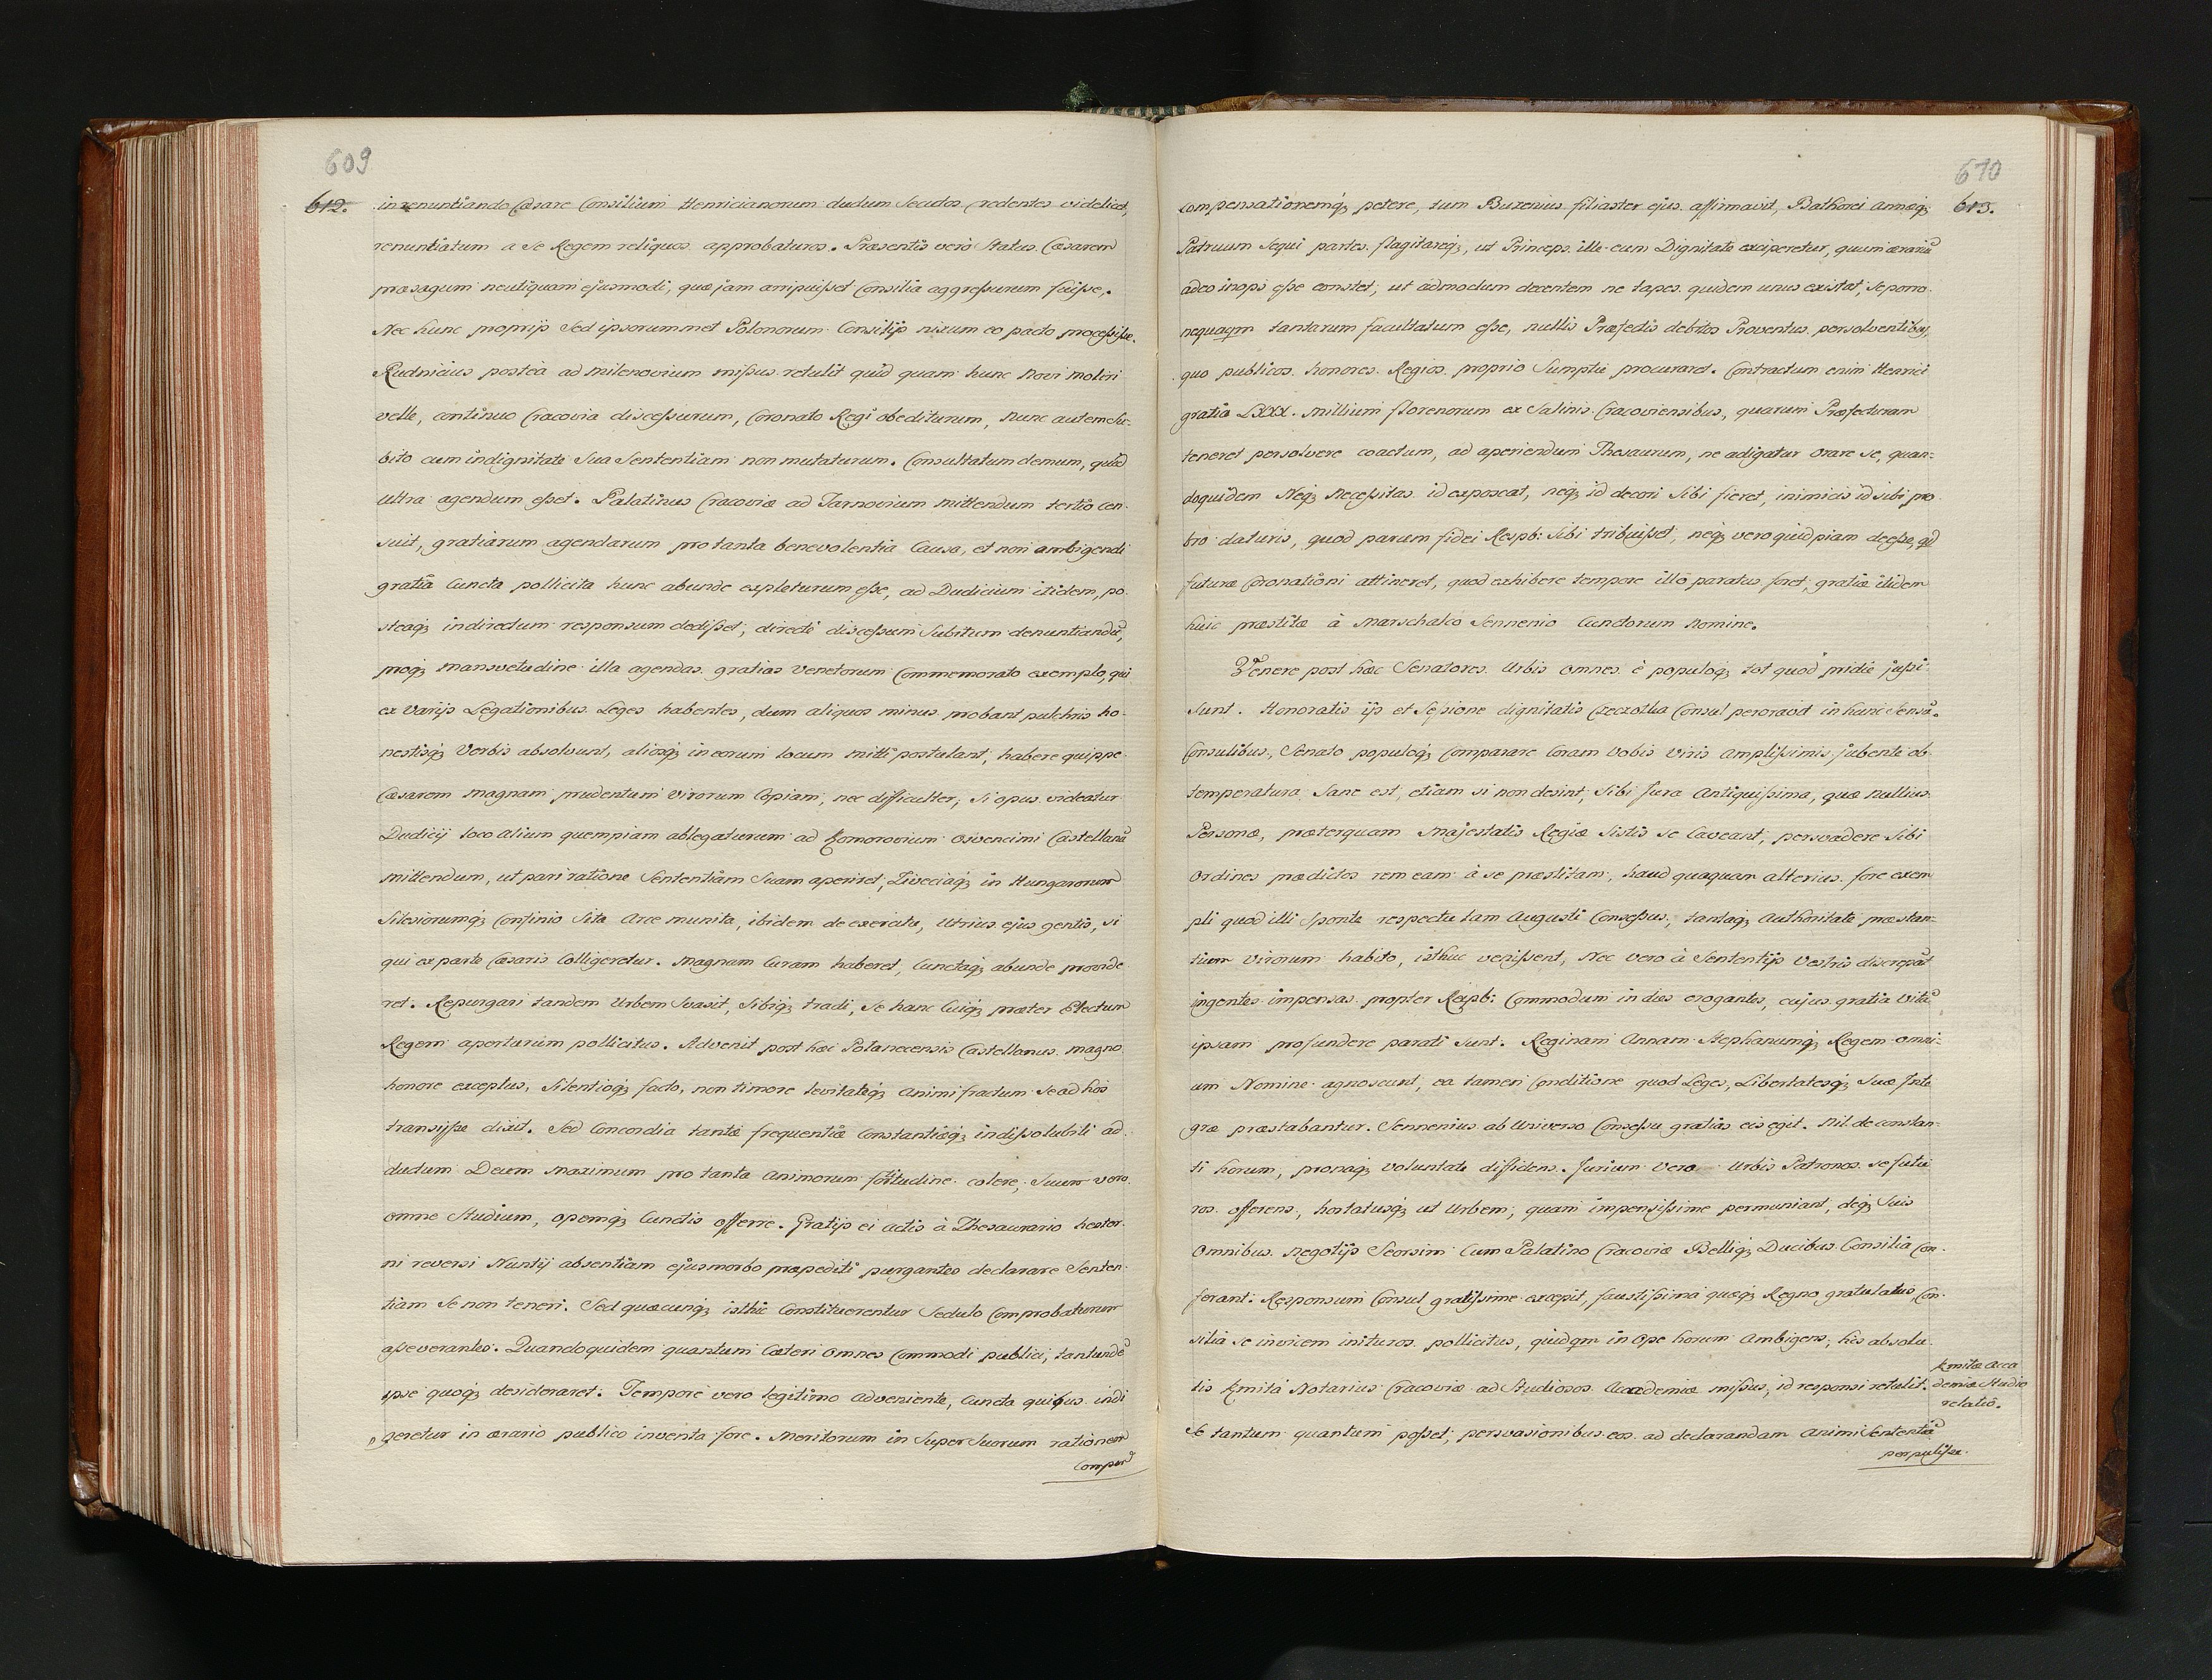 609
612.
in renuntiando Cæsare Consilium Henricianorum dudum Secutos credentes videlicet,
renuntiatum a se Regem reliquos approbaturos. Præsentis verò status Cæsarem
præsagum neutiquam ejusmodi, quæ jam arripuisset Consilia aggressurum fuisse,.
Nec hunc proprijs Sed ipsorummet Polonorum Consilijs nixum eo pacto processisse.
Rudnicius posteà ad Milenovium missus retulit quid quam hunc Novi moliri
velle, continuo Cracovia discessurum, Coronato Regi obediturum, Nunc autem Su-
bito cum indignitate Sua Sententiam non mutaturum. Consultatum demum, quid
ultra agendum esset. Palatinus Cracoviæ ad Tarnovium mittendum tertiò cen-
suit, gratiarum agendarum pro tanta benevolentia Causa, et non ambigendi
gratiâ Cuncta pollicita hunc abunde expleturum esse, ad Dudicium itidem, po-
steaq; indirectum responsum dedisset, directè discessum Subitum denuntiandū,
proq; mansvetudine illa agendas gratias Venetorum Commemorato exemplo, qui
ex Varijs Legationibus Leges habentes, dum aliquos minus probant pulchris ho-
nestisq; Verbis absolvunt, aliosq; in eorum locum mitti postulant, habere quippe
Cæsarem magnam prudentum Virorum Copiam, nec difficulter, Si opus videatur
Dudicij loco Alium quempiam ablegaturum ad Komorovium Osvencimi Castellanū
mittendum, ut pari ratione Sententiam Suam aperiret, Ziveciaq; in Hungarorum
Silesiorumq; Confinio Sita Arce munita, ibidem de exercitu, Utrius ejus gentis, si
qui ex parte Cæsaris Colligeretur. Magnam Curam haberet, Cunctaq; abunde provide
ret. Repurgari tandem Urbem Svasit, Sibiq; tradi, Se hanc Cuiq; præter Electum
Regem aperturum pollicitus. Advenit post hæc Polanecensis Castellanus magno
honore exceptus, Silentioq; facto, non timore levitateq; Animi fractum Se ad hos
transijsse dixit. Sed Concordia tantæ frequentiæ Constantiæq; indissolubili ad-
dudum Deum Maximum pro tanta Animorum fortitudine colere, Suum vero
omne Studium, opemq; Cunctis offerre. Gratijs ei actis à Thesaurario hester-
ni reversi Nuntij absentiam ejus morbo præpediti purgantes declarare Senten-
tiam Se non teneri. Sed quæcunq; isthic Constituerentur Sedulo Comprobaturum
asseverantes. Quandoquidem quantum Cæteri Omnes Commodi publici, tantundē
ipse quoq; desideraret. Tempore vero legitimo Adveniente, Cuncta quibus indi
geretur in ærario publico inventa fore. Meritorum in Super Suorum rationem
Compen
610
613.
Compensationemq; petere, tum Buxenius filiaster ejus affirmavit, Bathorei Annæq;
Patruum Sequi partes flagitareq;, ut Princeps ille cum Dignitate exciperetur, quum ærariū
adeo inops esse constet, ut ad modum decentem ne tapes quidem unus existat, se porro
nequaqm tantarum facultatum esse, nullis Præfectis debitos Proventus persolventibus,
quo publicos honores Regios proprio Sumptu procuraret. Contractum enim Henrici
gratia LXXX. Millium florenorum ex Salinis Cracoviensibus, quarum Præfecturam
teneret persolvere coactum, ad aperiendum Thesaurum, ne adigatur orare se, quan-
doquidem Neq; necessitas id exposcat, neq; id decori Sibi fieret, inimicis id sibi pro
bro daturis, quod parum fidei Respb: Sibi tribuisset, neq; vero quidpiam deesse, qd
futuræ Coronationi attineret, quod exhibere tempore illo paratus foret, gratiæ itidem
huic præstitæ à Marschalco Sennenio Cunctorum Nomine.
Venere post hæc Senatores Urbis omnes è populoq; tot quod pridie jussi
Sunt. Honoratis ijs et Sessione dignitatis Czeczotha Consul peroravit in hunc Sensū.
Consulibus, Senato populoq; Comparare Coram Vobis Viris Amplissimis jubente ob-
temperatura Sane est, etiam si non desint, Sibi Jura Antiquissima, quæ nullius
Personæ, præterquam Majestatis Regiæ Sistis se Caveant, persvadere Sibi
Ordines prædictos rem eam à se præstitam, haud quaquam alterius fore exem
pli quod illi Sponte respectu tam Augusti Consessus, tantaq; Authoritate præstan-
tium Virorum habito, isthuc venissent, Nec vero à Sententijs Vestris discrepāt
ingentes impensas propter Reipb: Commodum in dies erogantes, cujus gratia vitā
ipsam profundere parati Sunt. Reginam Annam Stephanumq; Regem omni-
um Nomine agnoscunt, ea tamen Conditione quod Leges, Libertatesq; Suæ Inte
græ præstabantur. Sennenius ab Universo Consessu gratias eis egit. Nil de constan-
ti horum, pronaq; Voluntate diffidens. Jurium vero Urbis Patronos se futu
ros offerens, hortatusq; ut Urbem, quam impensissime permuniant, deq; Suis
Omnibus Negotijs Seorsim Cum Palatino Cracoviæ Belliq; Ducibus Consilia Con-
ferant. Responsum Consul gratissime excepit, faustissima quæq; Regno gratulatus Con-
silia se invicem inituros pollicitus, quidqm in Ope horum Ambigens, his absolu
tis Kmita Notarius Cracoviæ ad Studiosos Academiæ missus, id responsi retulit.
Kmitæ Acca
demiæ Studio
relatio.
Se tantum quantum posset, persvasionibus eos ad declarandam Animi Sententiā
perpulisse.